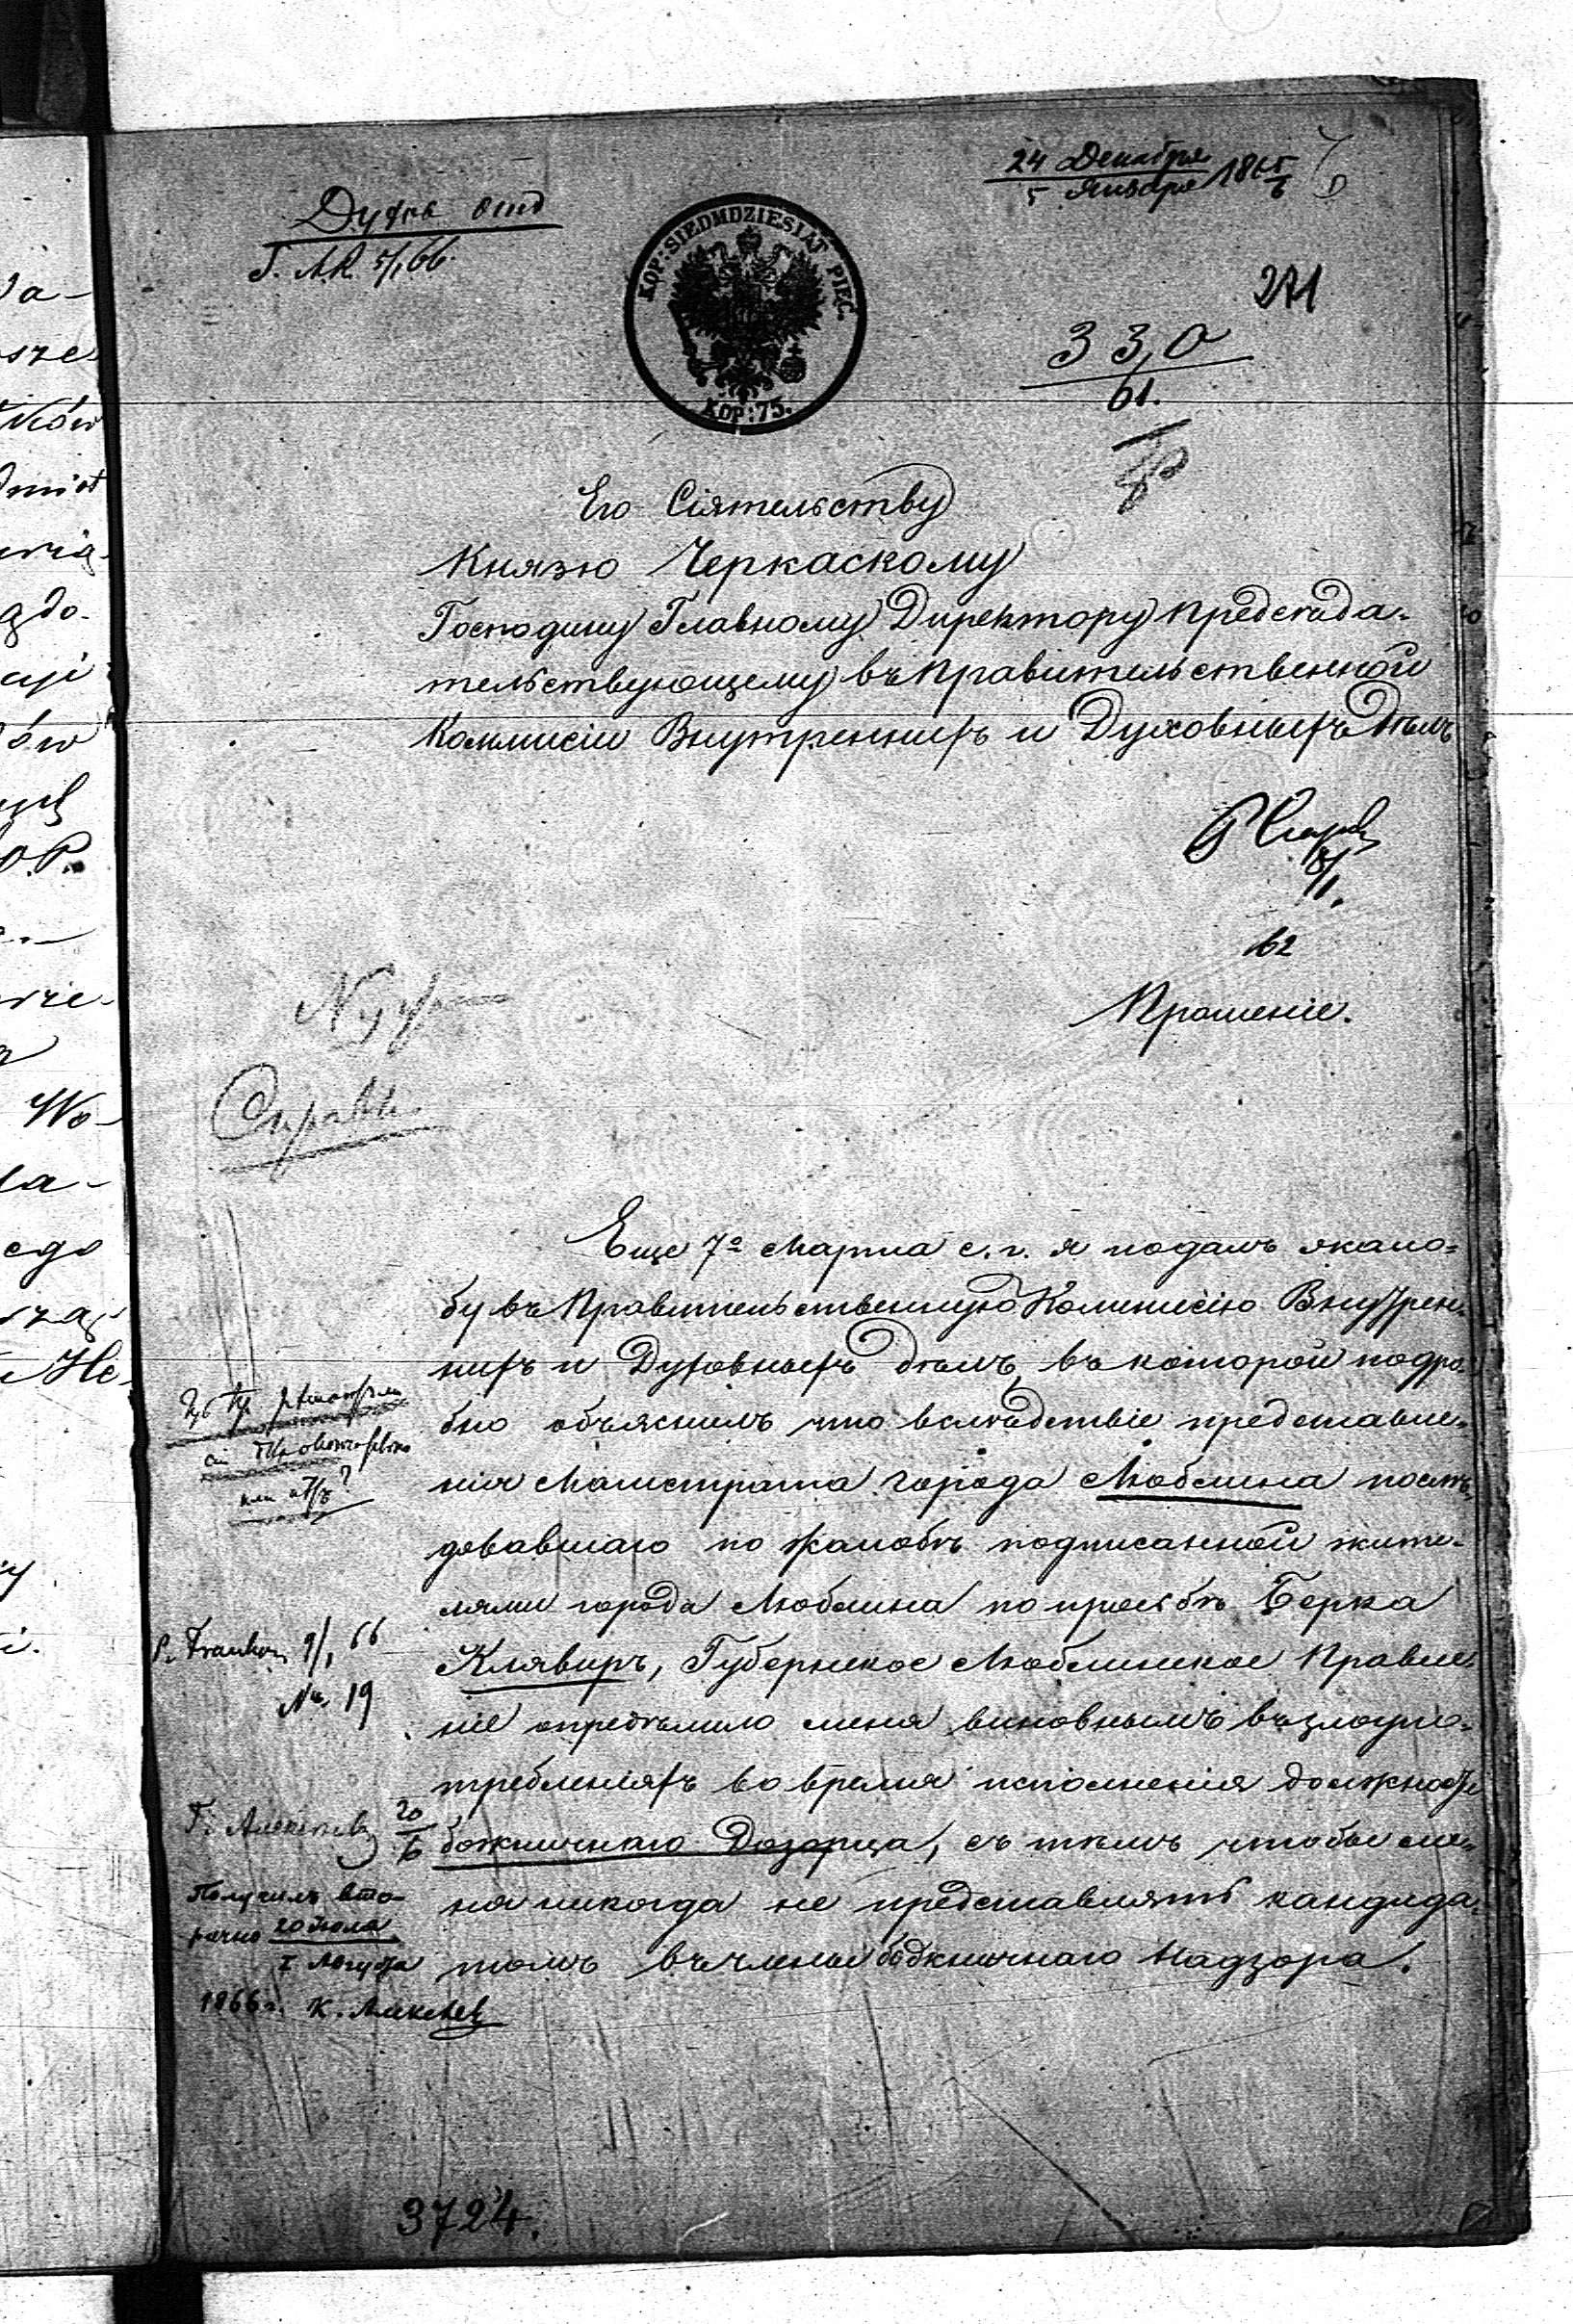 24 Декабря
5 Января 1865/6
Духв. отд
Г. А.К. 5/1 66.
KOP: SIEDMDZIESIĄT PIĘĆ.
KOP: 75.
271
330
61.
Его Сіятельству
Князю Черкаскому
Господину Главному Директору Предсѣда-
тельствующему въ Правительственной
Коммисіи Внутреннихъ и Духовныхъ дѣлъ
8/1.
62
Прошеніе.
Справк.
Еще 7º Марта с. г. я подалъ жало-
бу въ Правительственную Коммисію Внутрен-
нихъ и Духовныхъ дѣлъ, въ которой подро-
бно объяснилъ что вслѣдствіе представле-
нія Магистрата города Люблина послѣ-
довавшаго по жалобѣ подписанной жите-
лями города Люблина по просьбѣ Берка
Клявиръ, Губернское Люблинское Правле-
ніе опредѣлило меня виновнымъ въ злоупо-
требленіяхъ во время исполненія должности
божничнаго Дозорца, съ тѣмъ чтобы ме-
ня никогда не представлять кандида-
томъ въ члены божничнаго Надзора.
или
9/1 66
№ 19
Г. Алексѣевъ 20/6
Получилъ вто-
рично 20 Іюля
1 Августа
1866 г. К. Алексѣевъ
3724.